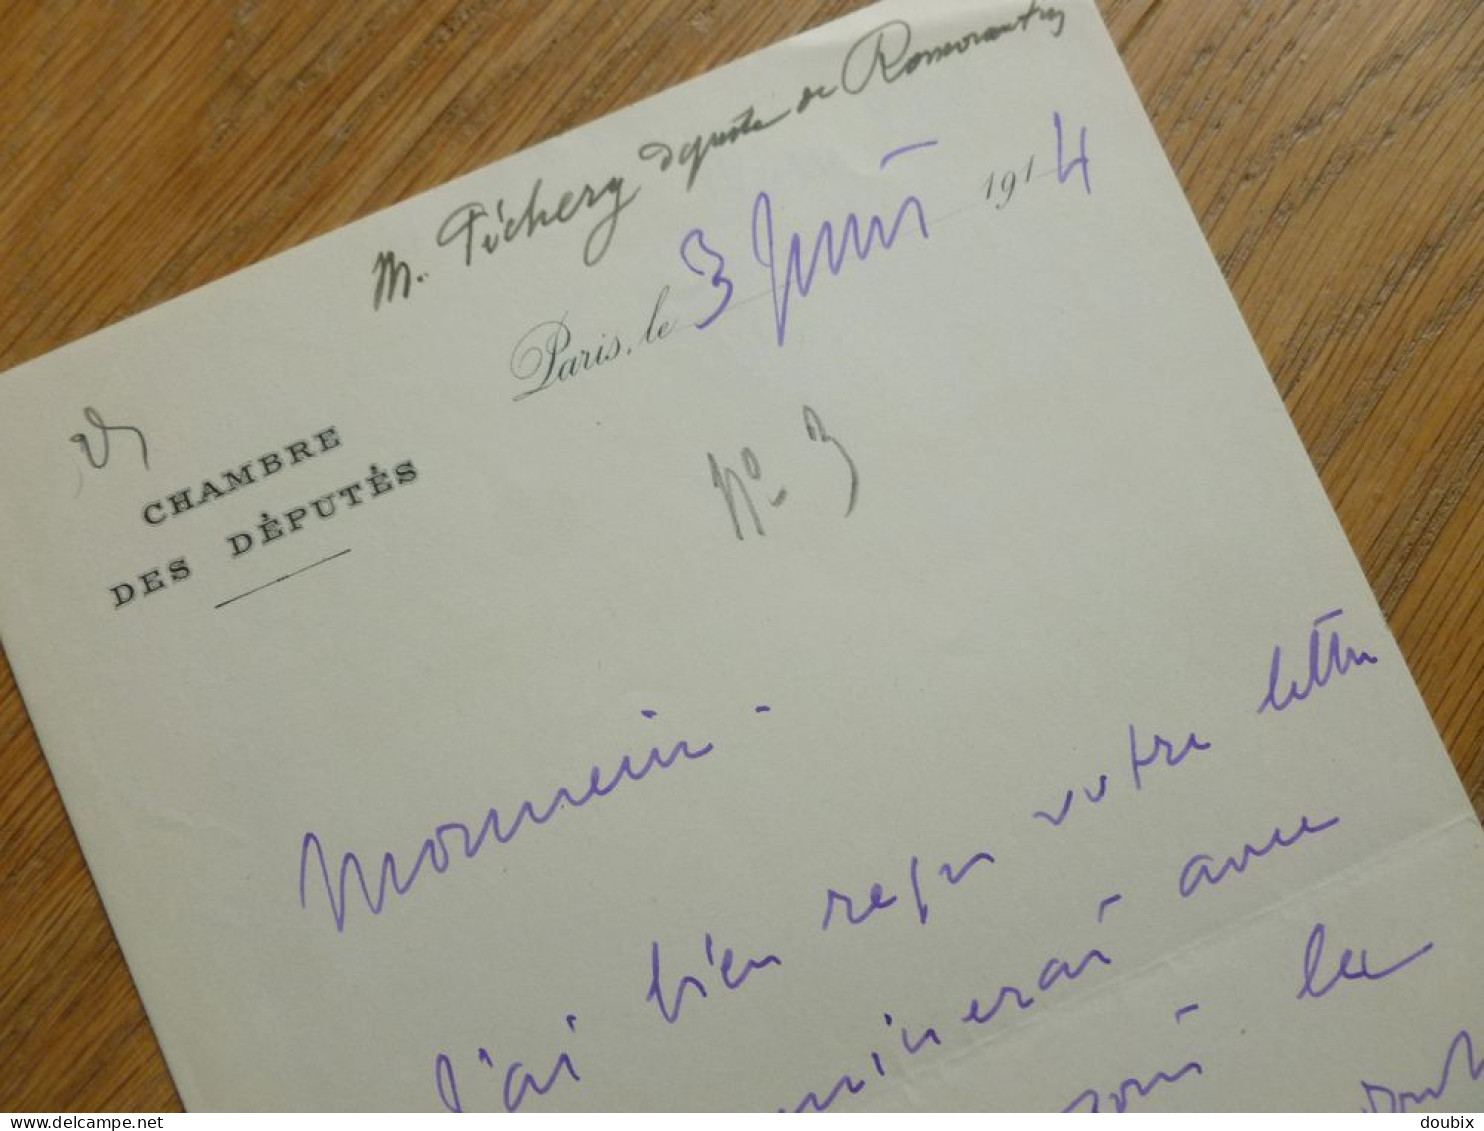 M. Pichery député de Romorantin
Paris, le 3 Juin 1914
CHAMBRE
DES DÉPUTÉS
No. 3
Monsieur -
J'ai bien reçu votre lettre
minerai avec
la
delcampe.net
doubix